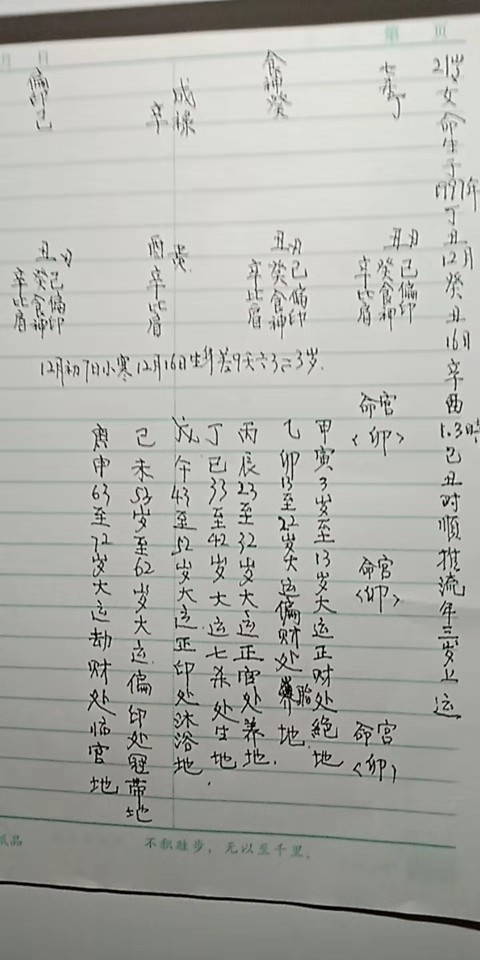 第 页
月 日
21岁女命生于1997年丁丑12月癸丑16日辛酉1.3时己丑时顺推流年三岁上运
七杀丁
食神癸
成禄
辛
偏印己
丑月
己偏印
癸食神
辛比肩
丑月
己偏印
癸食神
辛比肩
酉
辛比肩
丑月
己偏印
癸食神
辛比肩
12月初7日小寒12月16日生年差9天÷3=3岁.
命宫
<卯>
命宫
<卯>
命宫
<卯>
甲寅3岁至13岁大运正财处絶地
乙卯13至22岁大运偏财处胎地.
丙辰23至32岁大运正官处养地.
丁巳33至42岁大运七杀处生地.
戊午43至52岁大运正印处沐浴地
己未53岁至62岁大运偏印处冠带地
庚申63至72岁大运劫财处临官地
纸品
不积跬步，无以至千里。